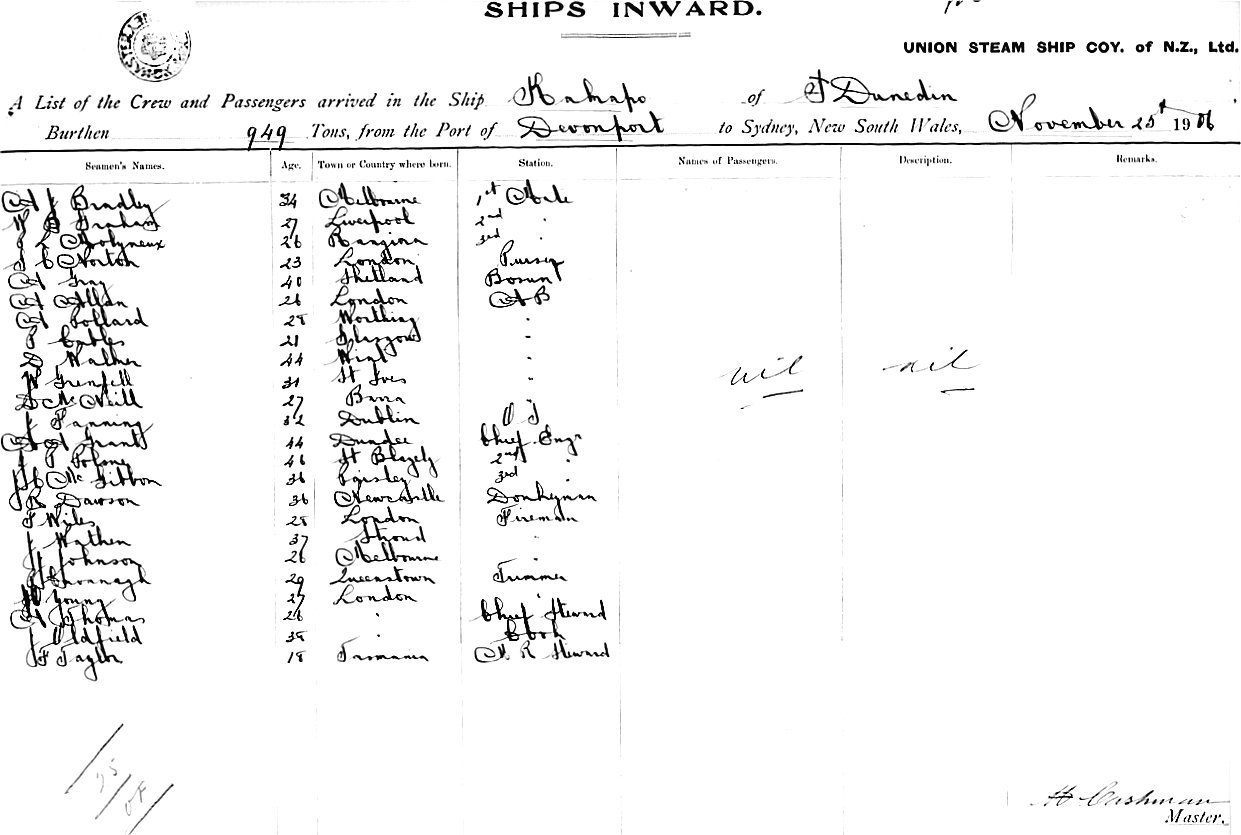 SHIPS INWARD.
UNION STEAM SHIP COY. of N.Z., Ltd.
A List of the Crew and Passengers arrived in the Ship Kahapo of Dunedin
Burthen 949 Tons, from the Port of Devonport to Sydney, New South Wales, November 25t 1906
Seamen's Names. Age. Town or Country where born. Station. Names of Passengers. Description. Remarks.
A J Bradley 34 Melbourne 1st Mate
W B Graham 27 Liverpool 2nd "
L Molyneux 26 Rangiora 3rd "
C Norton 23 London Purser
A Gray 40 Shetland Bosun
A Allan 26 London A B
A Pollard 28 Worthing "
Cables 21 Glasgow "
D Walker 44 "
W Grenfell 31 St Ives "
D McNeill 27 "
J Fanning 32 Dublin O S
A A Grant 44 Dundee Chief Engr
J Polsney 46 St Blazely 2nd "
C McGibbon 36 Paisley 3rd "
R Dawson 36 Newcastle Donkeyman
F Wiles 28 London Fireman
J Wathen 37 Stroud "
J Johnson 26 Melbourne "
J Cavanagh 29 Queenstown Trimmer
W Young 27 London "
A Thomas 26 " Chief Steward
J Oldfield 38 " Cook
F Taylor 18 Tasmania M R Steward
nil nil
H Cashman
Master.